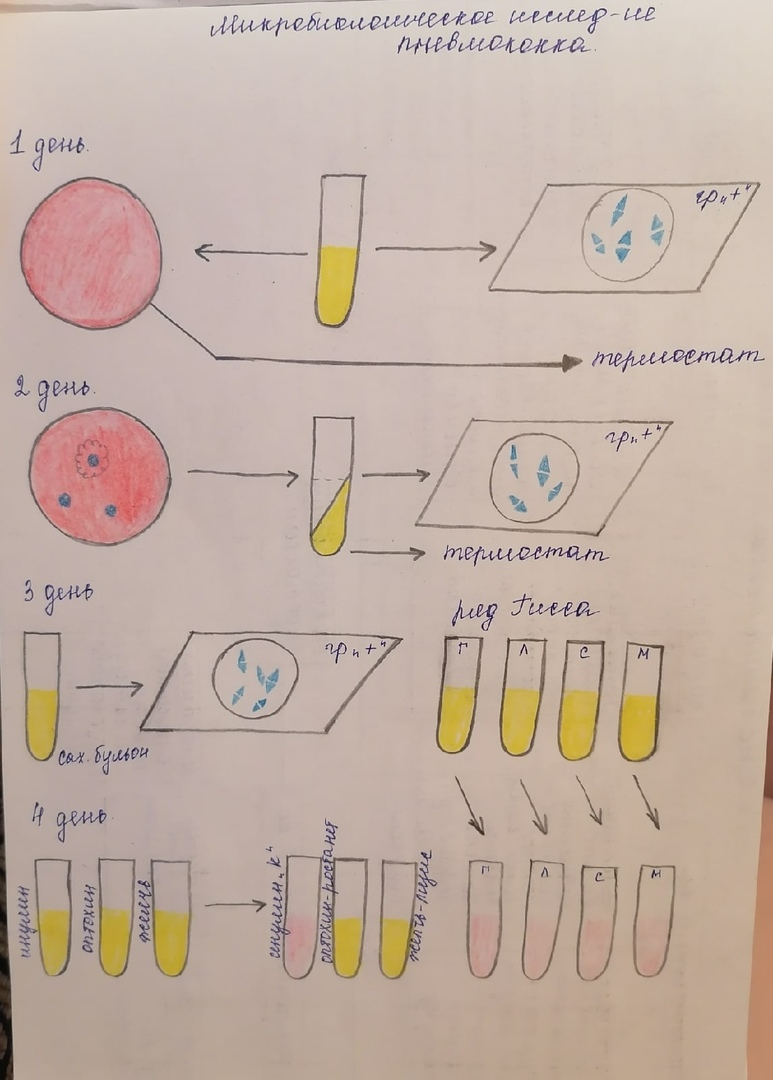 Микробиологическое исслед-ие
пневмококка.
1 день.
гр "+"
термостат
2 день.
гр "+"
термостат
3 день
ряд Гисса
гр "+"
Г Л С М
сах. бульон
4 день.
инулин
оптохин
желчь
инулин "К"
оптохин-ростанет
желчь-лизис
Г Л С М